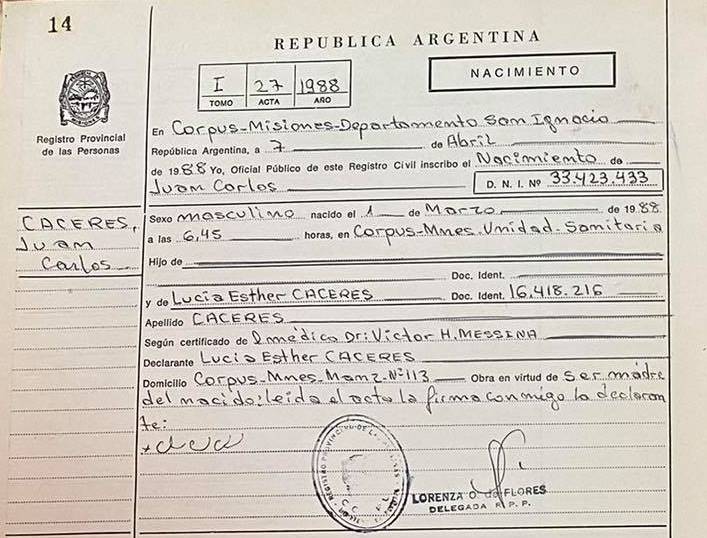 14
REPUBLICA ARGENTINA
I 27 1988
TOMO ACTA AÑO
NACIMIENTO
Registro Provincial
de las Personas
En Corpus-Misiones-Departamento San Ignacio
República Argentina, a 7 de Abril
de 1988 Yo, Oficial Público de este Registro Civil inscribo el Nacimiento de
Juan Carlos D. N. I. Nº 33.423.433
CACERES,
Juan
Carlos
Sexo masculino nacido el 1 de Marzo de 1988
a las 6,45 horas, en Corpus-Mnes. Unidad Sanitaria
Hijo de
Doc. Ident.
y de Lucia Esther CACERES Doc. Ident. 16.418.216
Apellido CACERES
Según certificado de médico Dr: Victor H. MESSINA
Declarante Lucia Esther CACERES
Domicilio Corpus-Mnes-Manz. Nº 113 Obra en virtud de ser madre
del nacido: leida el acta la firma conmigo la declaran
te:
LORENZA O. de FLORES
DELEGADA R. P. P.